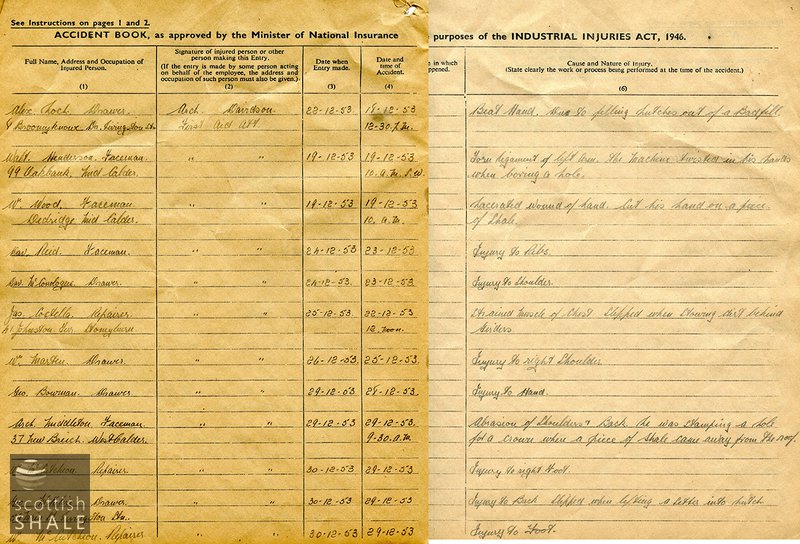 See Instructions on pages 1 and 2.
ACCIDENT BOOK, as approved by the Minister of National Insurance purposes of the INDUSTRIAL INJURIES ACT, 1946.
Full Name, Address and Occupation of Injured Person.
(1)
Signature of injured person or other person making this Entry.
(If the entry is made by some person acting on behalf of the employee, the address and occupation of such person must also be given.)
(2)
Date when Entry made.
(3)
Date and time of Accident.
(4)
in which happened.
Cause and Nature of Injury.
(State clearly the work or process being performed at the time of the accident.)
(6)
Alex. Loch. Drawer. Arch. Davidson 23-12-53 18-12-53 Beat Hand. Due to filling hutches out of a
Broomyknowe Livingston Stn. First Aid Att. 12-30
Walt. Henderson. Faceman. " " 19-12-53 19-12-53 Torn ligament of left arm. The machine twisted in his hands
99 Oakbank, Mid Calder. 10.a.m. when boring a hole.
Wm Wood, Faceman " " 19-12-53 19-12-53 Lacerated wound of hand. Cut his hand on a piece
Dedridge Mid Calder. 10.a.m. of Shale.
Dav. Reid. Faceman. " " 24-12-53 23-12-53 Injury to Ribs.
Drawer. " " 24-12-53 23-12-53 Injury to Shoulder.
Jas. Costello. Repairer " " 25-12-53 22-12-53 Strained muscle of Chest Slipped when stowing dirt behind
Johnston Ter. Stoneyburn 12 noon. Girders
Wm Marten Drawer. " " 26-12-53 25-12-53 Injury to right Shoulder
Geo. Bowman. Drawer " " 29-12-53 28-12-53 Injury to Hand.
Arch. Middleton Faceman " " 29-12-53 29-12-53 Abrasion of Shoulders & Back. He was stamping a hole
37 New Breich, West Calder. 9-30.a.m. for a crown when a piece of shale came away from the roof.
Repairer " " 30-12-53 29-12-53 Injury to right Foot.
Drawer " " 30-12-53 29-12-53 Injury to Back Slipped when lifting a into hutch
Stn.
Wm Repairer 30-12-53 29-12-53 Injury to Foot.
scottish
SHALE